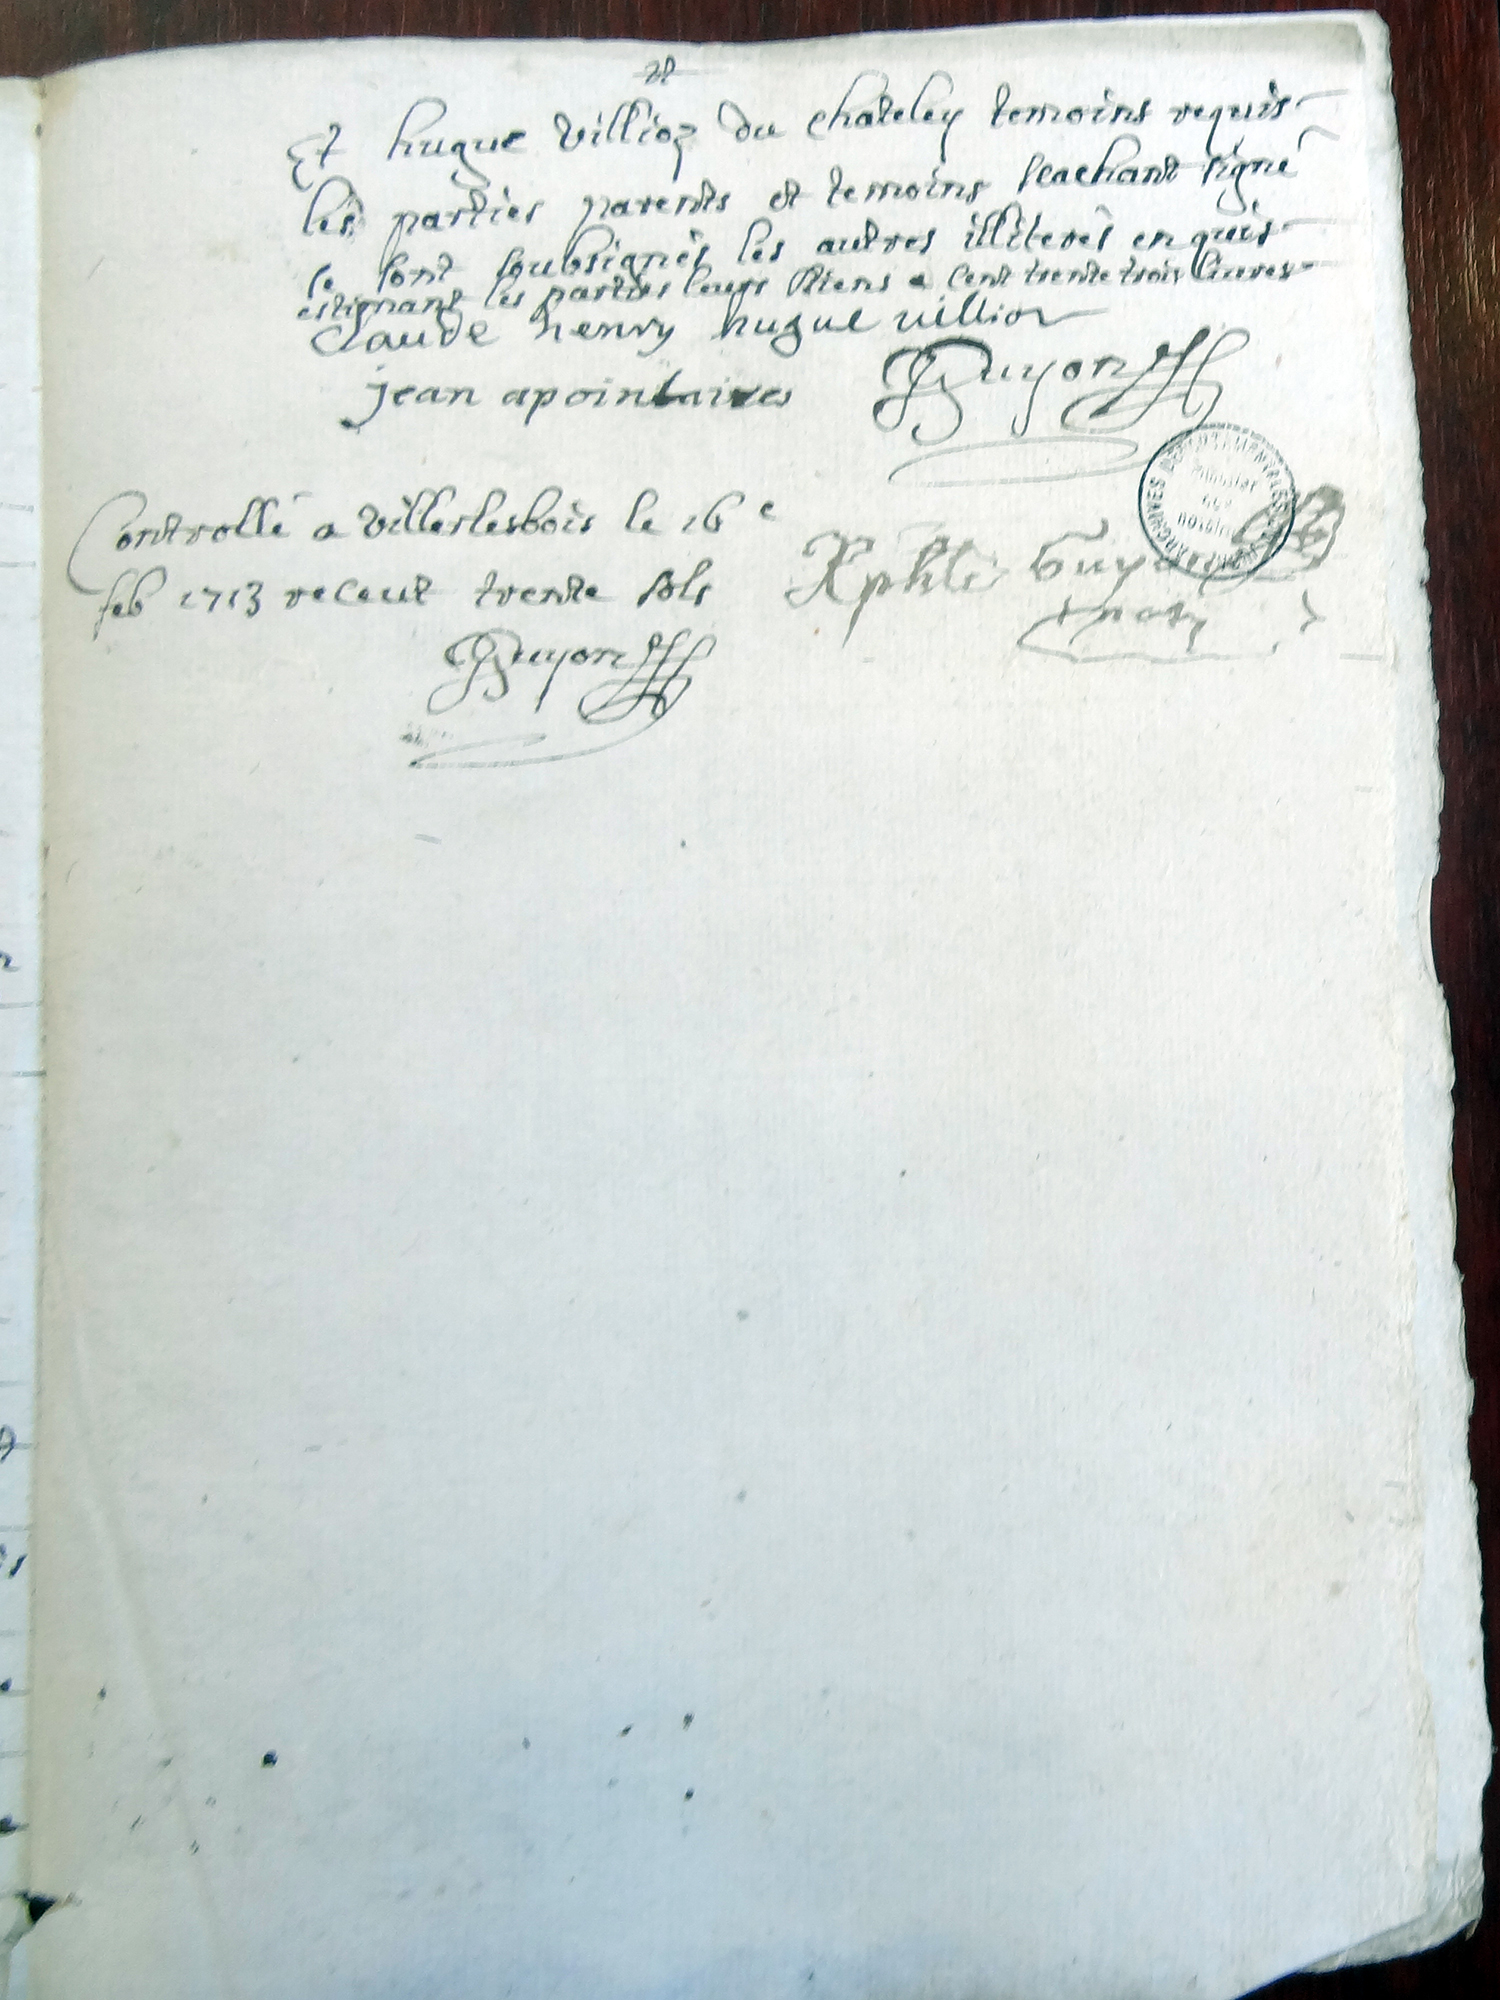 Et hugue Villioz du chateley temoins requis
les parties parents et temoins scachant signé
se sont soubsignés les autres illiterés enquis
estimant les parties leurs biens a cent trente trois livres
Claude henry hugue villioz
jean apointaires Guyon
Controllé a Villerlesbois le 16e
feb 1713 receut trente sols
Guyon
Guyon
not
ARCHIVES DEPARTEMENTALES